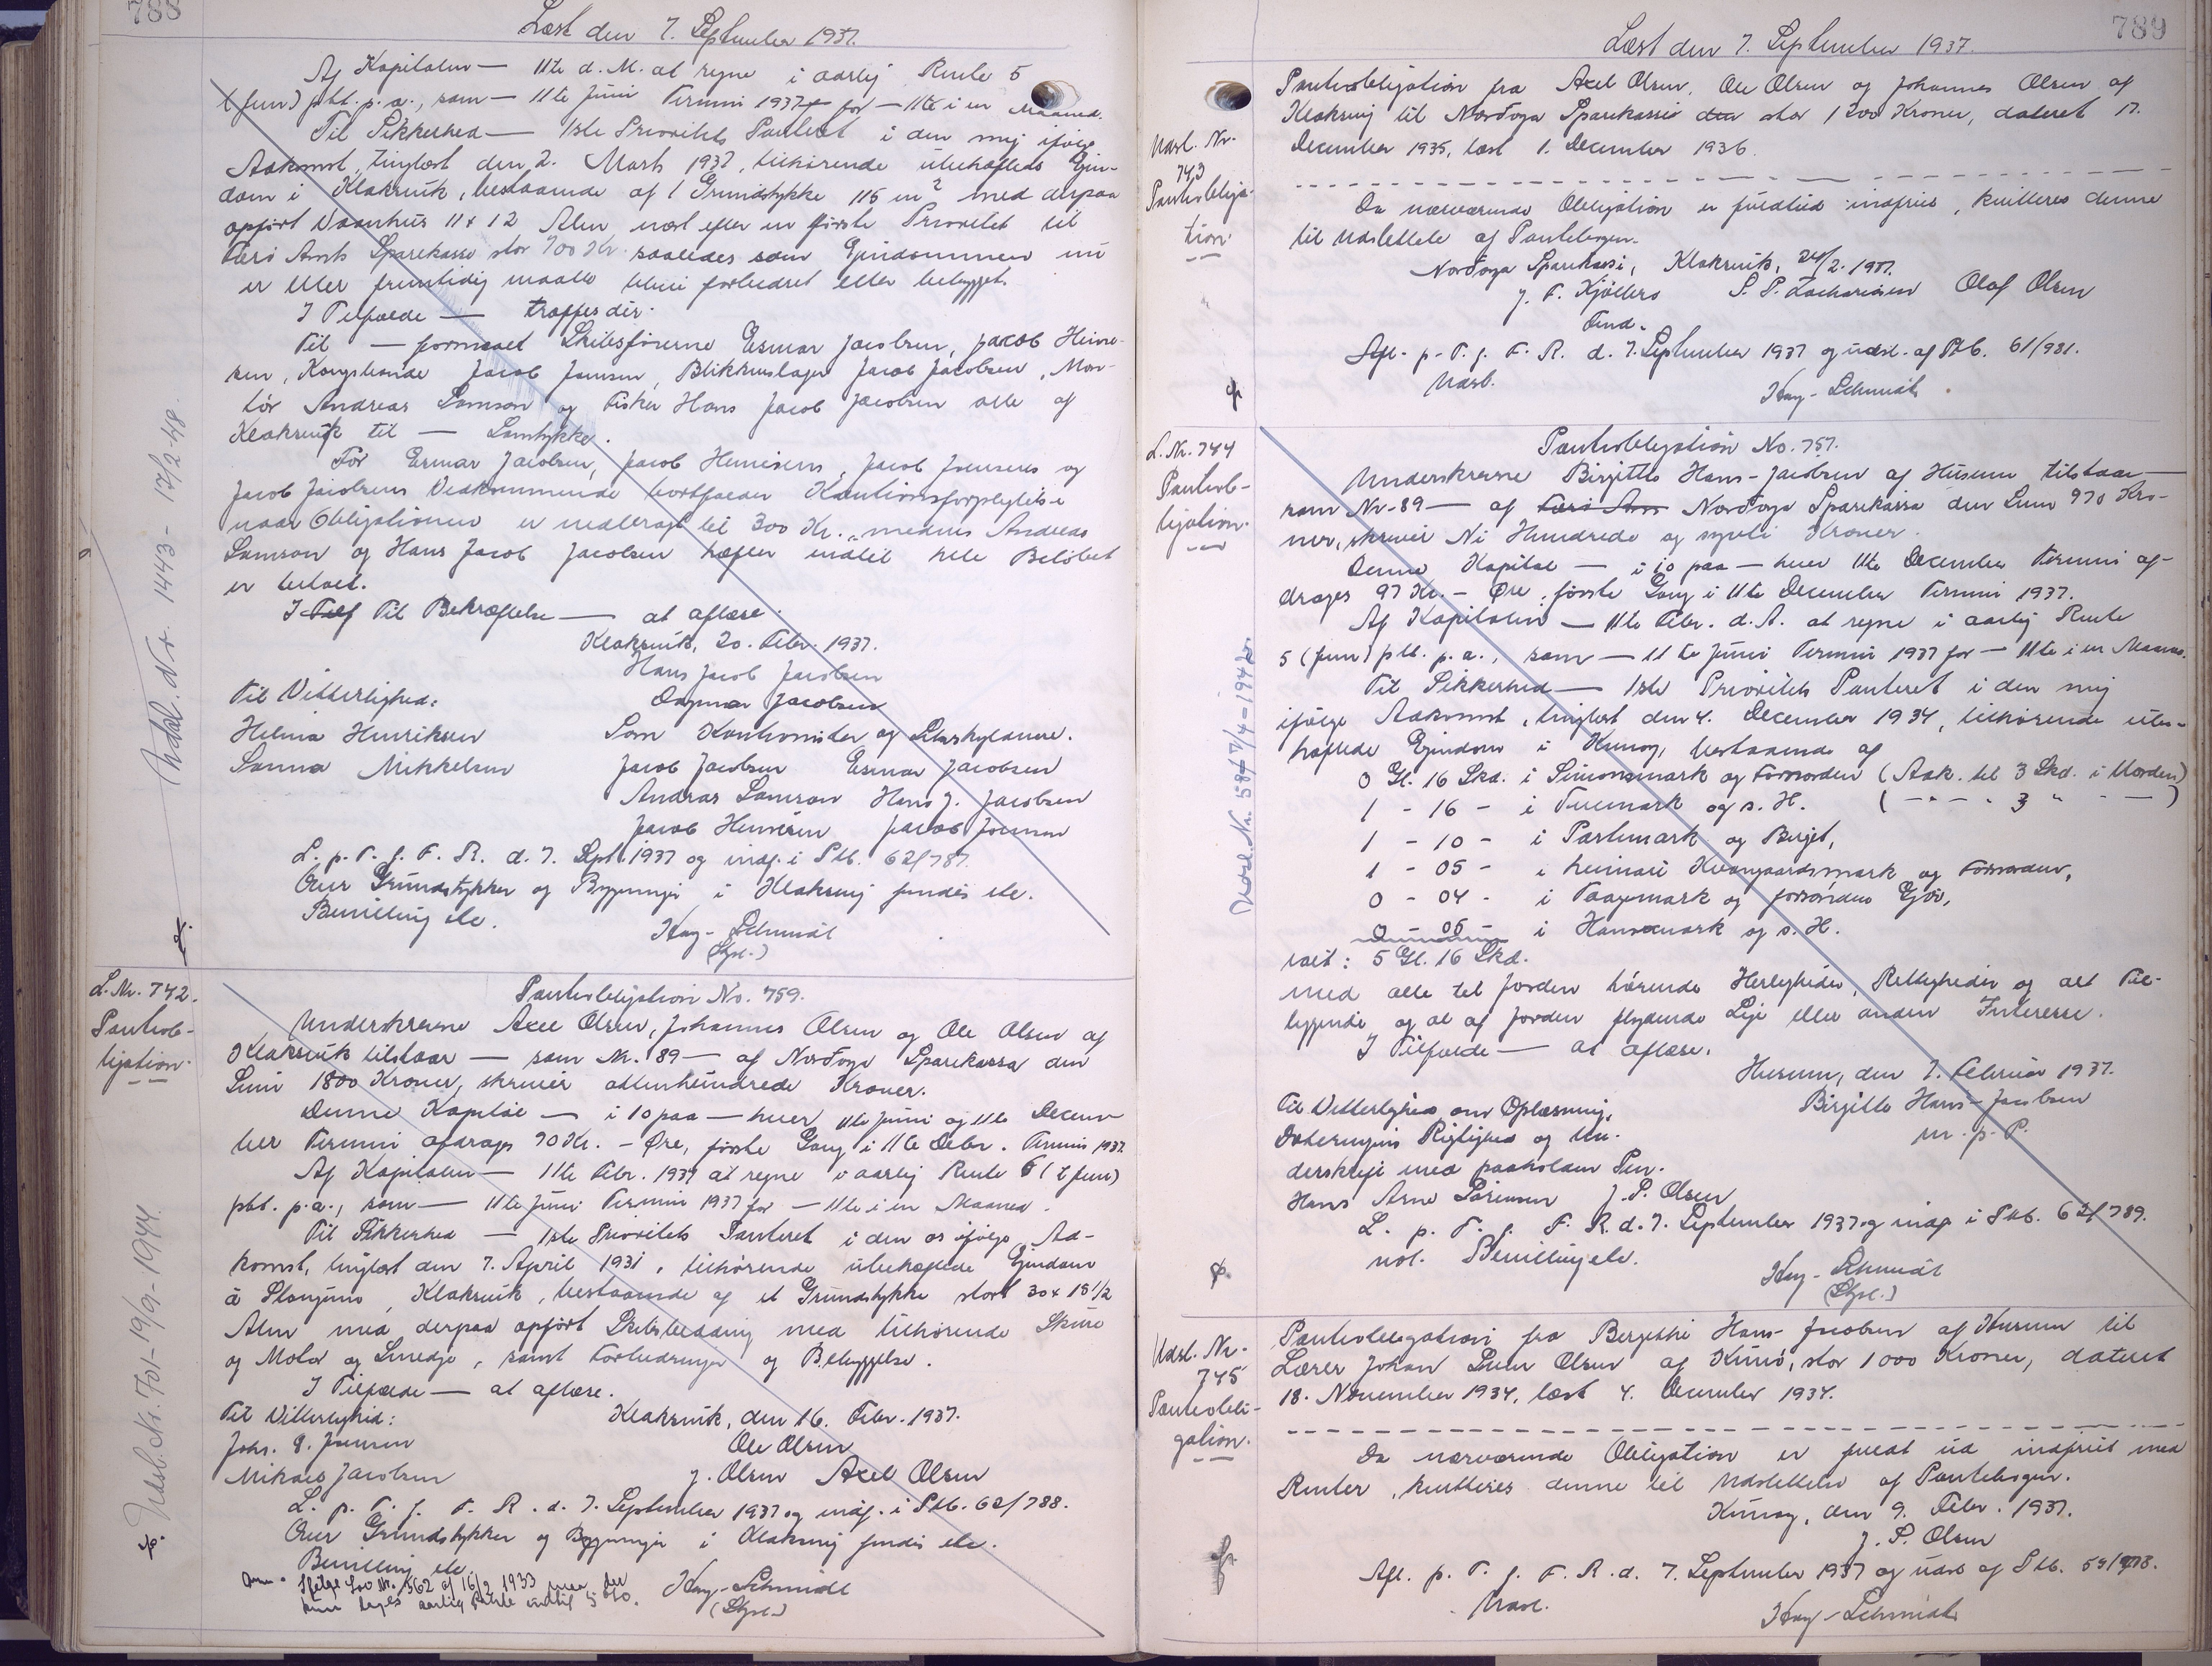 788
Læst den 7. September 1937.
Af Kapitalen — 11te d. M. at regne i aarlig Rente 5
(fem) pCt. p.a., som — 11te Juni Termin 1937 for — 11te i en Maaned.
Til Sikkerhed — 1ste Prioritets Panteret i den mig ifølge
Adkomst, tinglæst den 2. Marts 1937, tilhørende ubehæftede Ejen-
dom i Klaksvik, bestaaende af 1 Grundstykke 115 m² med derpaa
opført Vaanhus 11 x 12 Alen næst efter en første Prioritet til
Færø Amts Sparekasse stor 700 Kr. saaledes som Ejendommen nu
er eller fremtidig maatte blive forbedret eller bebygget.
I Tilfælde — træffes der.
Til — formaaet Skibsførerne Esmar Jacobsen, Jacob Heine-
sen, Kongsbonde Jacob Joensen, Blikkenslager Jacob Jacobsen, Mon-
tør Andreas Samson og Fisker Hans Jacob Jacobsen alle af
Klaksvik til — Samtykke.
For Esmar Jacobsen, Jacob Heinesens, Jacob Joensens og
Jacob Jacobsens Vedkommende bortfalder Kautionsforpligtelse
naar Obligationen er nedbragt til 300 Kr., medens Andreas
Samson og Hans Jacob Jacobsen hæfter indtil hele Beløbet
er betalt.
I Tilf Til Bekræftelse — at aflæse.
Klaksvik, 20. Febr. 1937.
Hans Jacob Jacobsen
Til Vitterlighed: Dagmar Jacobsen
Helena Henriksen Som Kautionister og Selvskyldnere.
Sanna Mikkelsen Jacob Jacobsen Esmar Jacobsen
Andreas Samson Hans J. Jacobsen
Jacob Heinesen Jacob Joensen
L. p. T. f. F. R. d. 7. Sept. 1937 og indf. i Ptb. 62/787.
Over Grundstykker og Bygninger i Klaksvig findes etc.
Bevilling etc. Kay-Schmidt
(Sign.)
Udsl. Nr. 1443 - 17/2-48.
L. Nr. 742.
Pantob-
ligation.
Pantobligation No. 759.
Underskrevne Axel Olsen, Johannes Olsen og Ole Olsen af
Klaksvik tilstaar — som Nr. 89 — af Norðoya Sparikassa den
Sum 1800 Kroner, skriver attenhundrede Kroner.
Denne Kapital — i 10 paa — hver 11te Juni og 11te Decem-
ber Termin afdrages 90 Kr. - Øre, første Gang i 11te Decbr. Termin 1937.
Af Kapitalen — 11te Febr. 1937 at regne i aarlig Rente 5 (fem)
pCt. p.a., som — 11te Juni Termin 1937 for — 11te i en Maaned.
Til Sikkerhed — 1ste Prioritets Panteret i den os ifølge Ad-
komst, tinglæst den 7. April 1931, tilhørende ubehæftede Ejendom
á Stongum, Klaksvik, bestaaende af et Grundstykke stort 30 x 18 1/2
Alen med derpaa opført Skibsbedding med tilhørende Skure
og Motor og Smedje, samt Forbedringer og Bebyggelse.
I Tilfælde — at aflæse.
Til Vitterlighed: Klaksvik, den 16. Febr. 1937.
Johs. J. Joensen Ole Olsen
Mikael Jacobsen J. Olsen Axel Olsen
L. p. T. f. F. R. d. 7. September 1937 og indf. i Ptb. 62/788.
Over Grundstykker og Bygninger i Klaksvig findes etc.
Bevilling etc.
Anm. Ifølge Lov Nr. 562 af 16/2 1933 maa der
kun tages aarlig Rente indtil 5 o/o. Kay-Schmidt
(Sign.)
Udsl. Nr. 701 - 19/9 - 1944.
789
Læst den 7. September 1937.
Udsl. Nr.
743
Pantobliga-
tion.
Pantobligation fra Axel Olsen, Ole Olsen og Johannes Olsen af
Klaksvig til Norðoya Sparikassi den stor 1200 Kroner, dateret 17.
December 1935, læst 1. December 1936.
Da nærværende Obligation er fuldtud indfriet, kvitteres denne
til Udslettelse af Pantebogen.
Norðoya Sparikassi, Klaksvik, 24/2. 1937.
J. F. Kjølbro S. P. Zachariasen Olaf Olsen
Fmd.
Afl. p. T. f. F. R. d. 7. September 1937 og udsl. af Ptb. 61/931.
Udsl. Kay-Schmidt
L. Nr. 744
Pantob-
ligation.
Pantobligation No. 757.
Underskrevne Birgitte Hans-Jacobsen af Husum tilstaar —
som Nr. 89 — af Færø Am Norðoya Sparikassa den Sum 970 Kro-
ner, skriver Ni Hundrede og syvti Kroner.
Denne Kapital — i 10 paa — hver 11te December Termin af-
drages 97 Kr. - Øre, første Gang i 11te December Termin 1937.
Af Kapitalen — 11te Febr. d. A. at regne i aarlig Rente
5 (fem) pCt. p. a., som — 11te Juni Termin 1937 for — 11te i en Maaned.
Til Sikkerhed — 1ste Prioritets Panteret i den mig
ifølge Adkomst, tinglæst den 4. December 1934, tilhørende ube-
hæftede Ejendom i Kunoy, bestaaende af
0 Gl. 16 Skd. i Simonsmark og Forsorden (Adk. til 3 Skd. i Uorden)
1 - 16 - i Tuemark og s. H. ( - " - " 3 " - )
1 - 10 - i Partemark og Birgit,
1 - 05 - i heimari Kvangaardsmark og Forsorden,
0 - 04 - i Taagemark og forsorden Gjov,
0 - 05 - i Hansemark og s. H.
ialt: 5 Gl. 16 Skd.
med alle til Jorden hørende Herligheder, Rettigheder og alt Til-
liggende og al af Jorden flydende Leje eller anden Interesse.
I Tilfælde — at aflæse.
Husum, den 7. Februar 1937.
Til Vitterlighed om Oplæsning, Birgitte Hans-Jacobsen
Dateringens Rigtighed og Un- m. p. P.
derskrift med paaholden Pen.
Hans Arne Sørensen J. P. Olsen
L. p. T. f. F. R. d. 7. September 1937 og indf. i Ptb. 62/789.
not. Bevilling etc. Kay-Schmidt
(Sign.)
Udsl. Nr. 587 7/4-1942.
Udsl. Nr.
745
Pantobli-
gation.
Pantobligation fra Bergitte Hans-Jacobsen af Husum til
Lærer Johan Poul Olsen af Kunö, stor 1000 Kroner, dateret
18. November 1934, læst 4. December 1934.
Da nærværende Obligation er fuldt ud indfriet med
Renter, kvitteres denne til Udslettelse af Pantebogen.
Kunoy, den 9. Febr. 1937.
J. P. Olsen
Afl. p. T. f. F. R. d. 7. September 1937 og udsl. af Ptb. 59/978.
Udsl. Kay-Schmidt